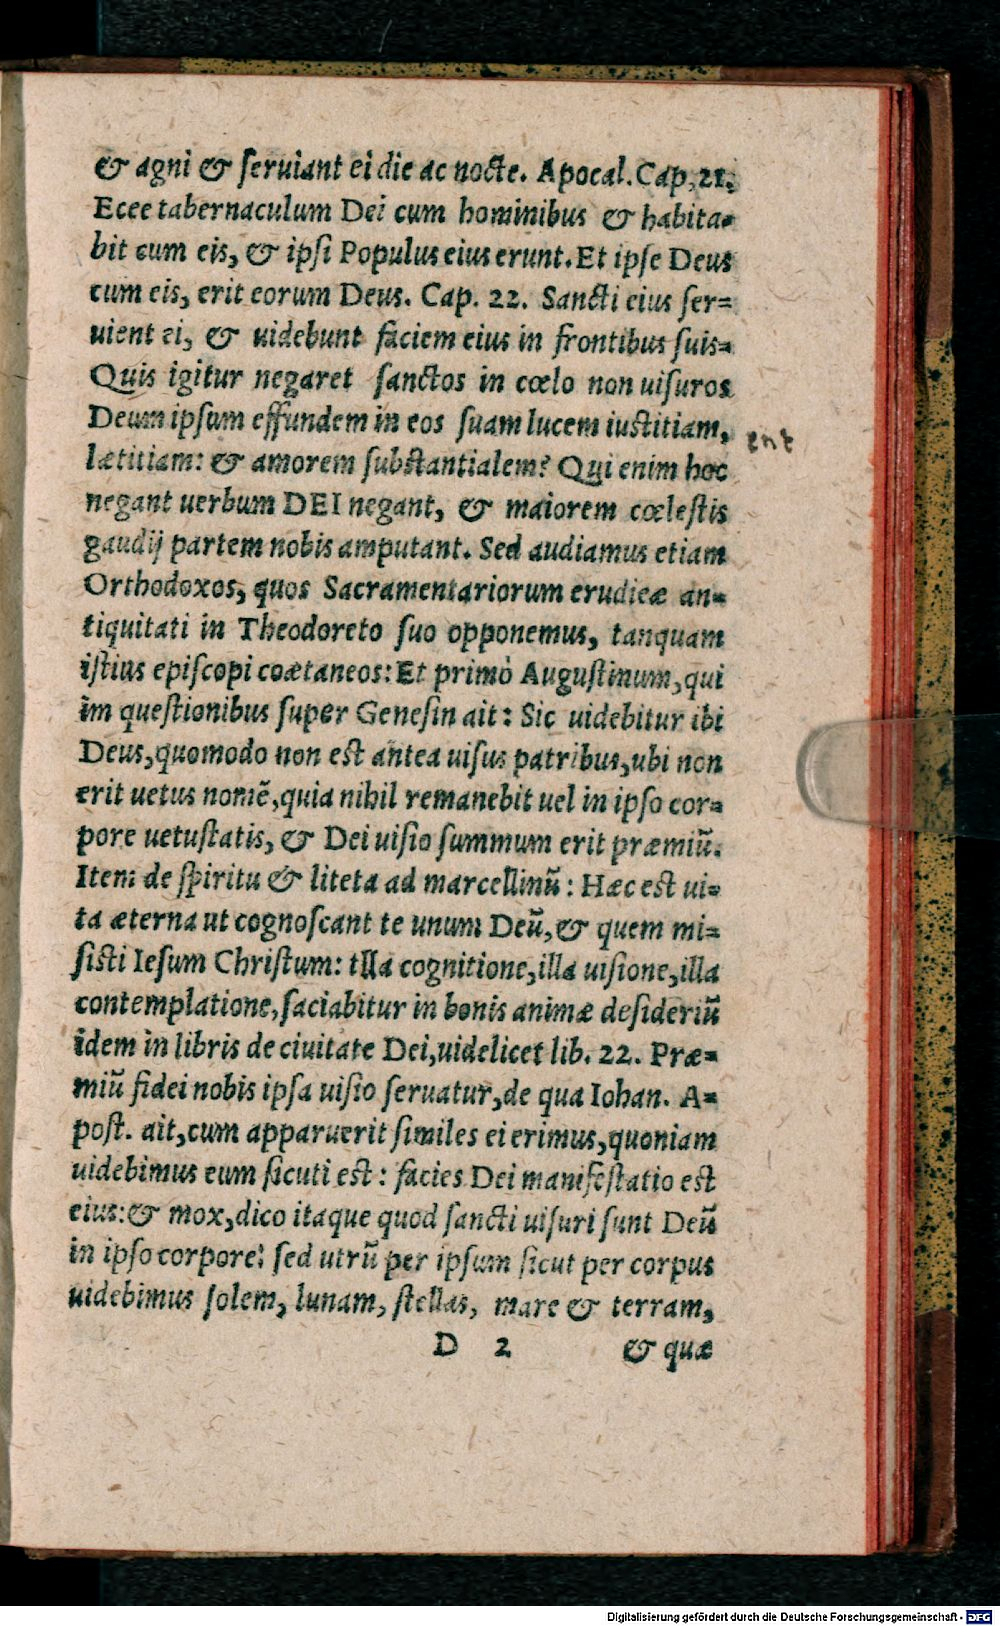 & agni & ſeruiant ei die ac nocte. Apocal. Cap. 21.
Ecee tabernaculum Dei cum hominibus & habita-
bit cum eis, & ipſi Populus eius erunt. Et ipſe Deus
cum eis, erit eorum Deus. Cap. 22. Sancti eius ſer-
uient ei, & uidebunt faciem eius in frontibus ſuis-
Quis igitur negaret ſanctos in cœlo non uiſuros
Deum ipſum effundem in eos ſuam lucem iustitiam,
ent
lætitiam: & amorem ſubstantialem? Qui enim hoc
negant uerbum DEI negant, & maiorem cœleſtis
gaudij partem nobis amputant. Sed audiamus etiam
Orthodoxos, quos Sacramentariorum erudieæ an-
tiquitati in Theodoreto ſuo opponemus, tanquam
iſtius epiſcopi coætaneos: Et primò Auguſtinum, qui
im queſtionibus ſuper Geneſin ait: Sic uidebitur ibi
Deus, quomodo non est antea uiſus patribus, ubi non
erit uetus nomē, quia nihil remanebit uel in ipſo cor-
pore uetuſtatis, & Dei uiſio ſummum erit præmiū.
Item de ſpiritu & liteta ad marcellinū: Hæc est ui-
ta æterna ut cognoſcant te unum Deū, & quem mi-
ſisti Ieſum Chriſtum: tlla cognitione, illa uiſione, illa
contemplatione, ſaciabitur in bonis animæ deſideriū
idem in libris de ciuitate Dei, uidelicet lib. 22. Præ-
miū fidei nobis ipſa uiſio ſeruatur, de qua Iohan. A-
poſt. ait, cum apparuerit ſimiles ei erimus, quoniam
uidebimus eum ſicuti est: facies Dei manifeſtatio est
eius: & mox, dico itaque quod ſancti uiſuri ſunt Deū
in ipſo corpore: ſed utrū per ipſum ſicut per corpus
uidebimus ſolem, lunam, ſtellas, mare & terram,
D 2 & quæ
Digitalisierung gefördert durch die Deutsche Forschungsgemeinschaft - DFG